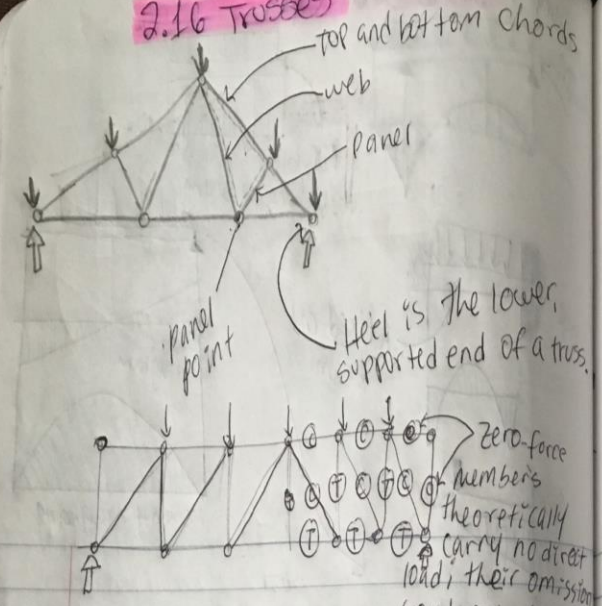 2.16 Trusses
Top and bottom chords
web
panel
panel
point
Heel is the lower,
supported end of a truss.
C C O
C T C T C O
T T T
Zero-force
members
theoretically
carry no direct
load; their omission